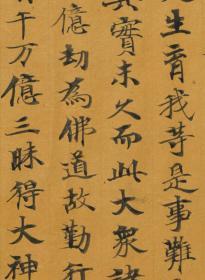 生育我等是事難
其實未久而此大衆諸
億劫為佛道故勤行
千万億三昧得大神